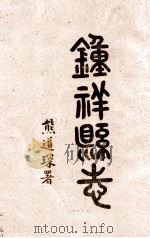 鍾祥縣志
熊道琛署
mtoou.info